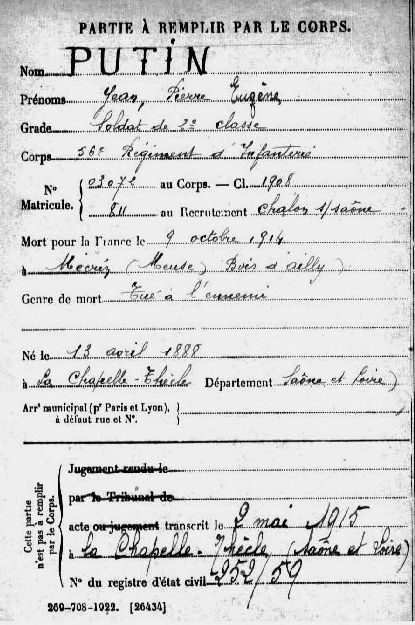 PARTIE À REMPLIR PAR LE CORPS.
Nom PUTIN
Prénoms Jean, Pierre Eugène
Grade Soldat de 2e classe
Corps 56e Régiment d'Infanterie
N° Matricule. { 03072 au Corps. — Cl. 1908
811 au Recrutement Chalon s/saône
Mort pour la France le 9 octobre 1914
à Mécrin (Meuse) Bois d'ailly)
Genre de mort Tué à l'ennemi
Né le 13 avril 1888
à La Chapelle-Thècle Département Saône et Loire)
Arrt municipal (pr Paris et Lyon), à défaut rue et N°.
Cette partie n'est pas à remplir par le Corps.
Jugement rendu le
par le Tribunal de
acte ou jugement transcrit le 2 mai 1915
à La Chapelle-Thècle (Saône et Loire)
N° du registre d'état civil 252/59
269-708-1922. [26434]